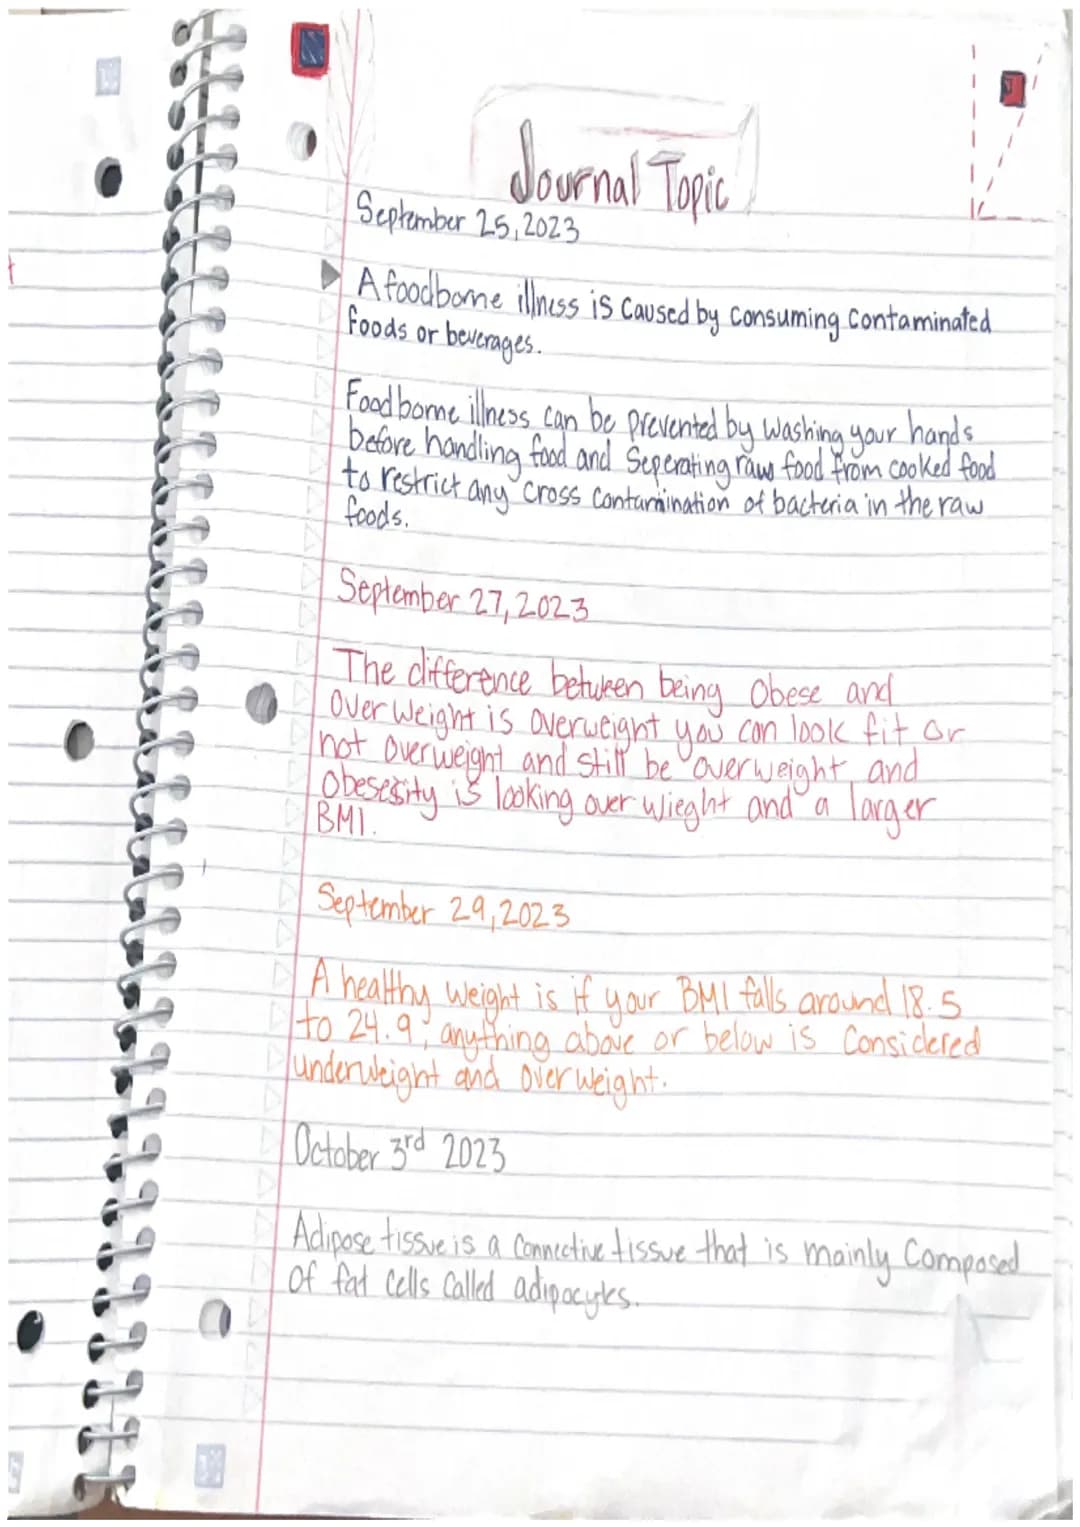 Journal Topic
September 25, 2023
A foodborne illness is caused by consuming contaminated
foods or beverages.
Foodborne illness can be prevented by washing your hands
before handling food and Seperating raw food from cooked food
to restrict any cross contamination of bacteria in the raw
foods.
September 27, 2023
The difference between being obese and
overweight is overweight you can look fit or
not overweight and still be overweight and
obesesity is looking over wieght and a larger
BMI.
September 29, 2023
A healthy weight is if your BMI falls around 18.5
to 24.9; anything above or below is considered
underweight and overweight.
October 3rd 2023
Adipose tissue is a connective tissue that is mainly composed
of fat cells called adipocytes.